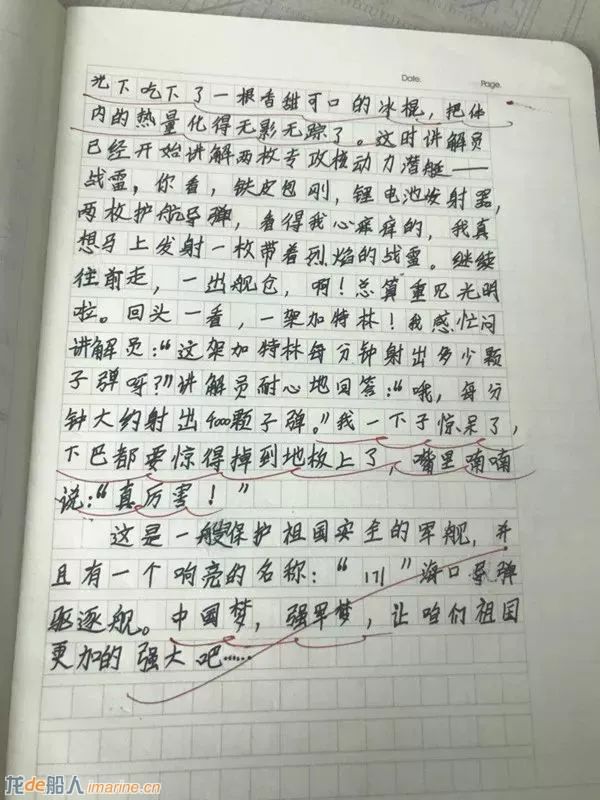 Date. Page.
光下吃下了一根香甜可口的冰棍，把体
内的热量化得无影无踪了。这时讲解员
已经开始讲解两枚专攻核动力潜艇——
战雷，你看，铁皮包刚，锂电池发射器，
两枚护航导弹，看得我心痒痒的，我真
想马上发射一枚带着烈焰的战雷。继续
往前走，一出舰仓，啊！总算重见光明
啦。回头一看，一架加特林！我急忙问
讲解员：“这架加特林每分钟射出多少颗
子弹呀？”讲解员耐心地回答：“哦，每分
钟大约射出4000颗子弹。”我一下子惊呆了，
下巴都要惊得掉到地板上了，嘴里喃喃
说：“真厉害！”
这是一艘保护祖国安全的军舰，并
且有一个响亮的名称：“171”海口导弹
驱逐舰。中国梦，强军梦，让咱们祖国
更加的强大吧……
龙de船人 imarine.cn